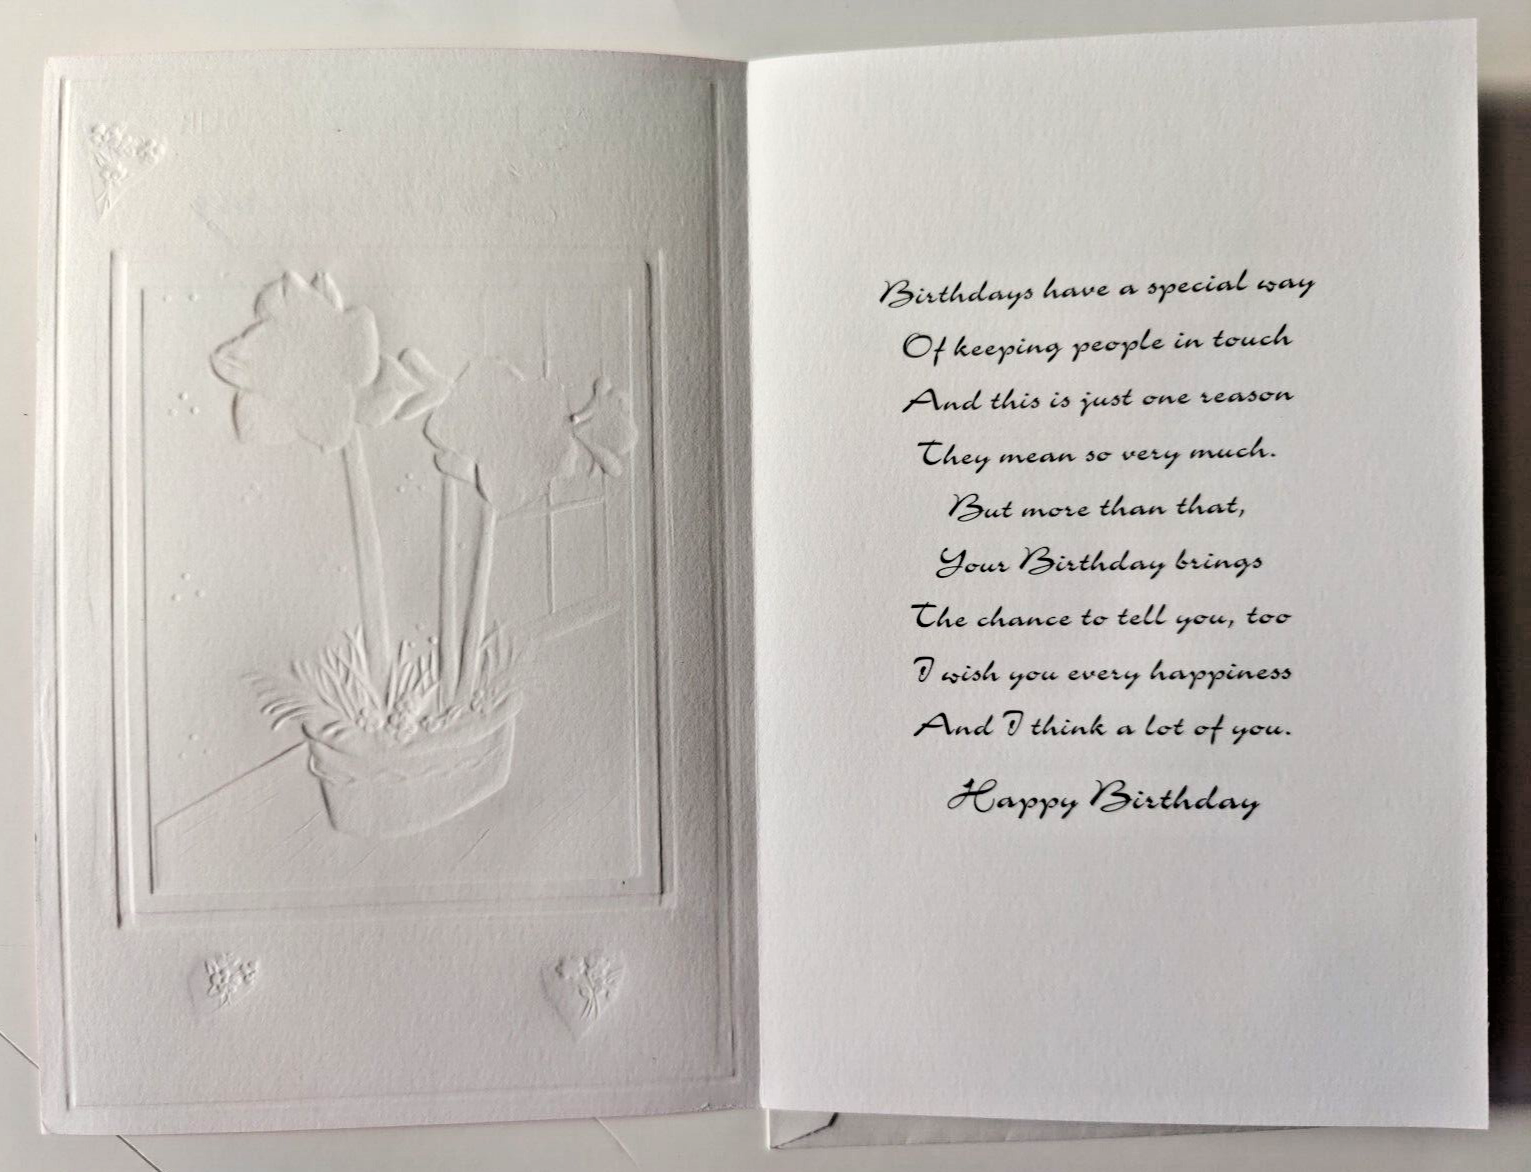 Birthdays have a special way
Of keeping people in touch
And this is just one reason
They mean so very much.
But more than that,
Your Birthday brings
The chance to tell you, too
I wish you every happiness
And I think a lot of you.
Happy Birthday